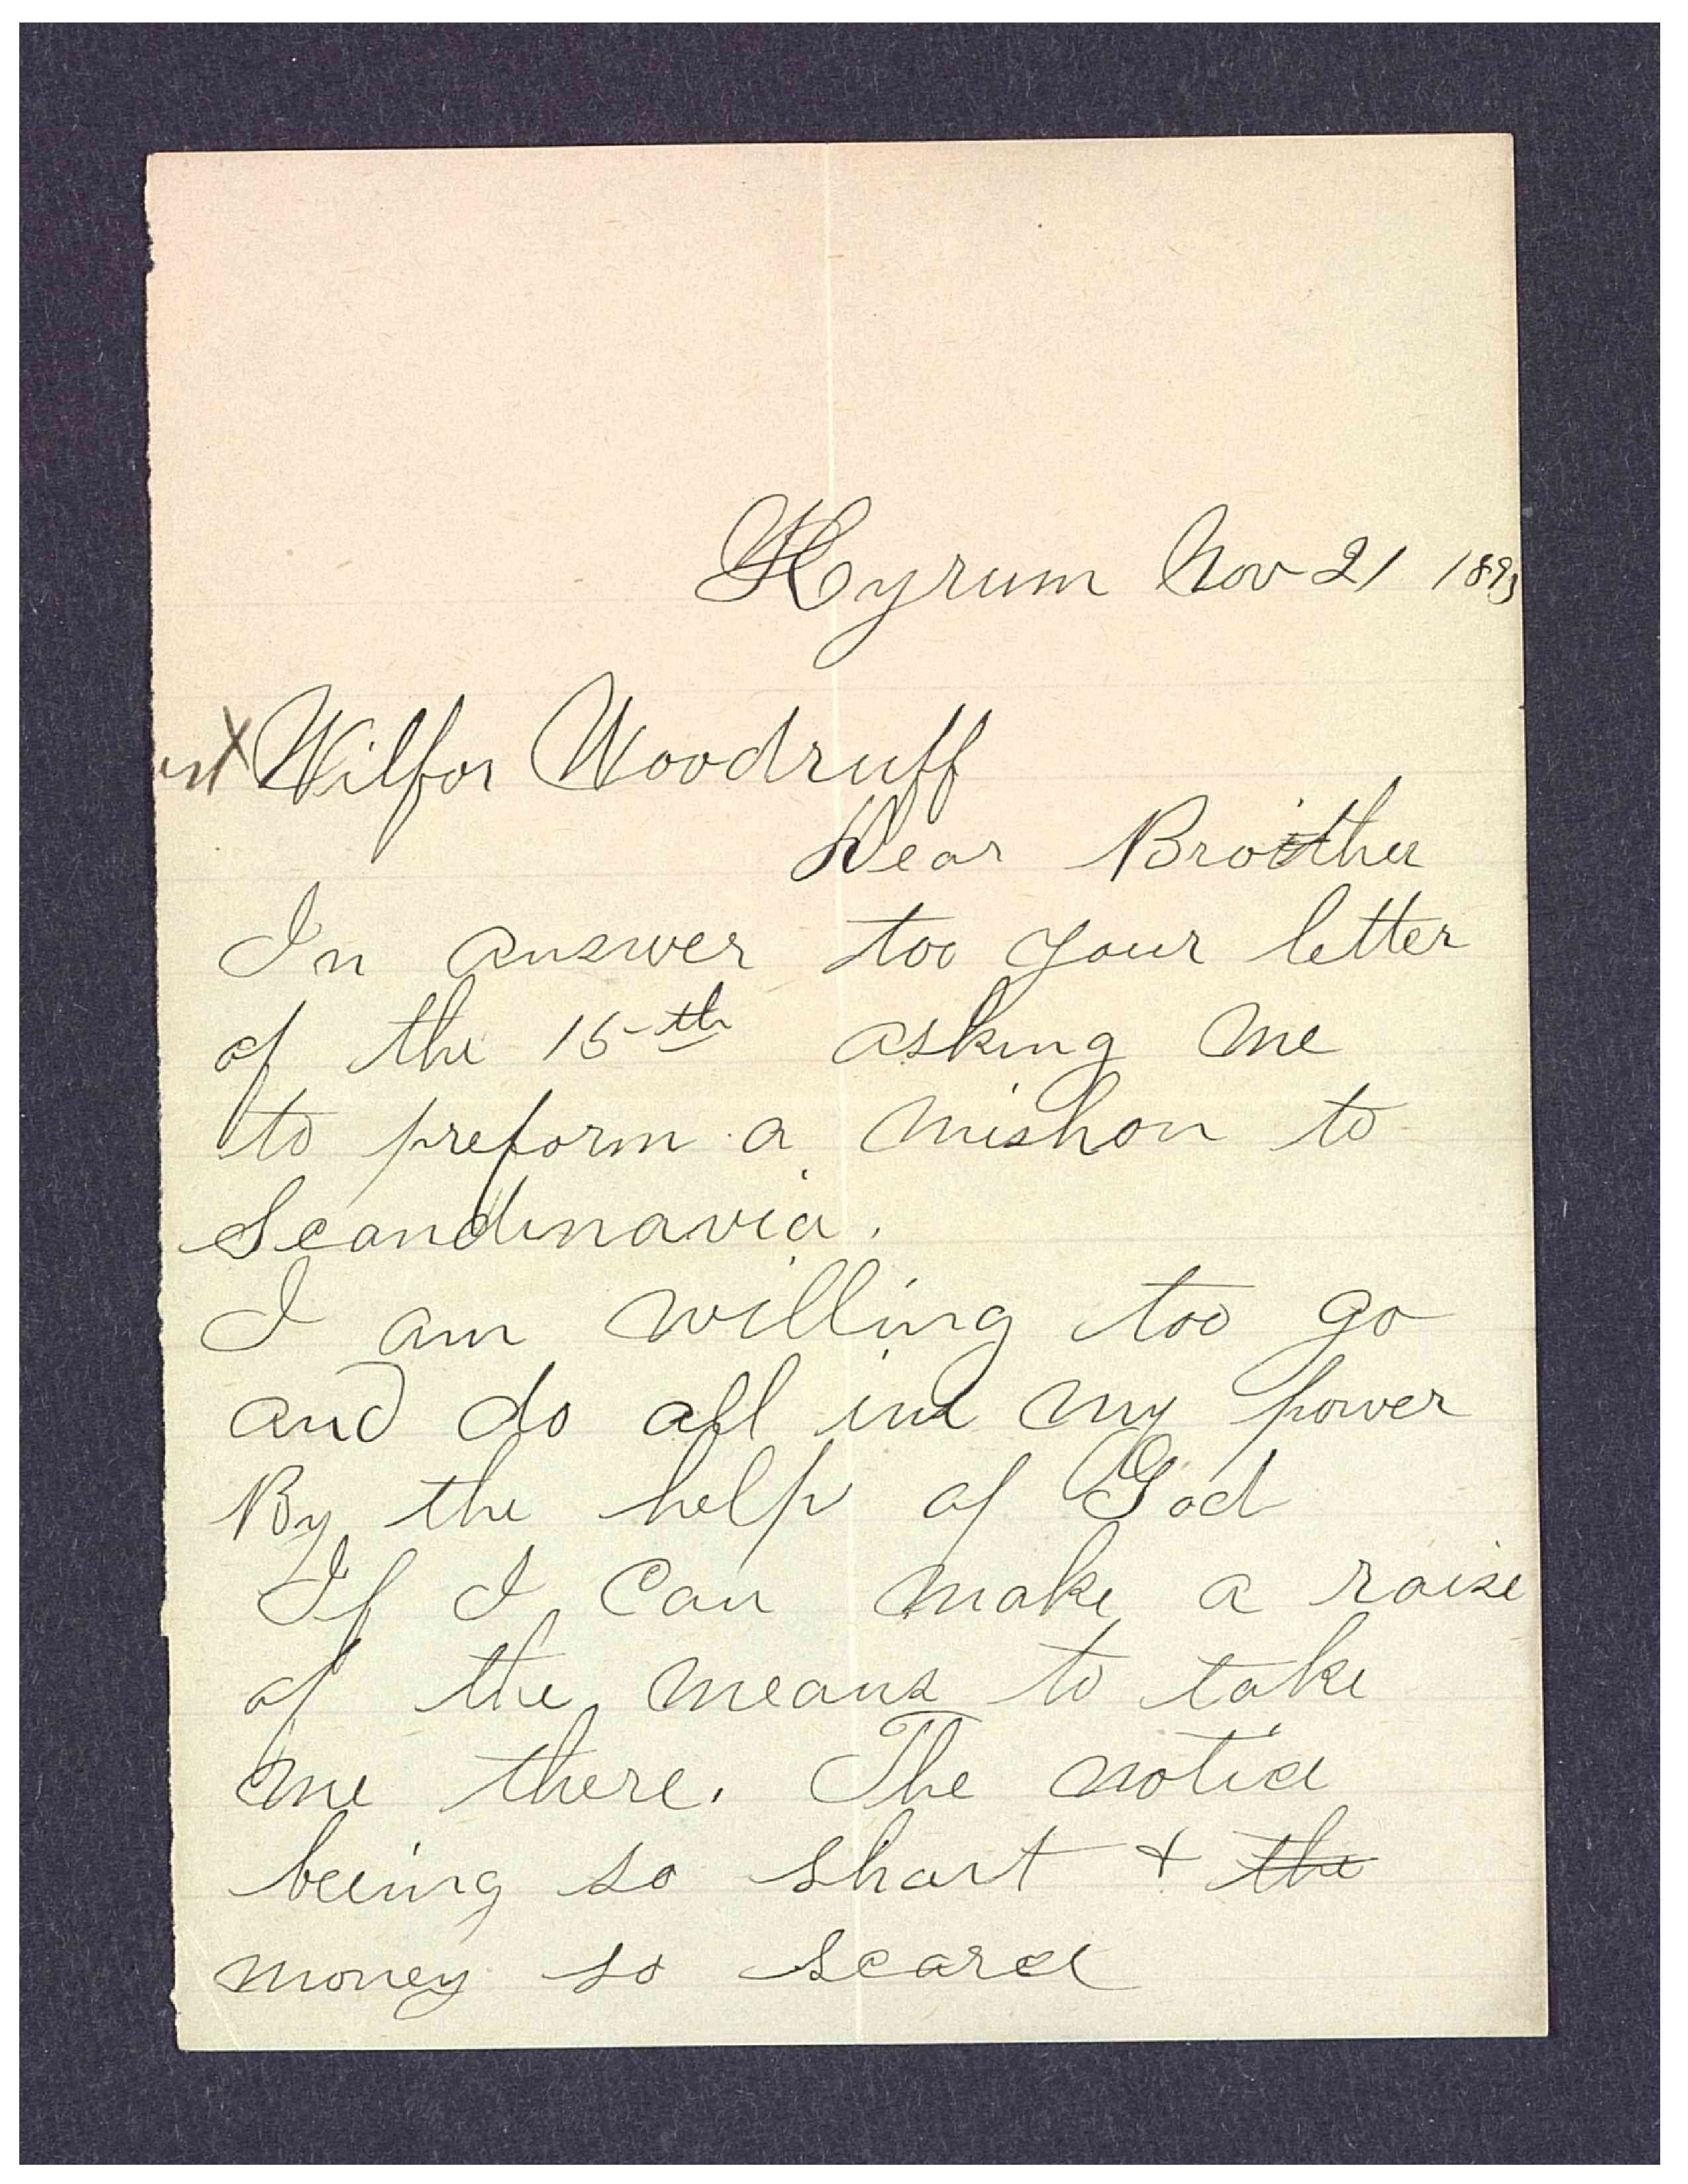 Hyrum Nov 21 1893
Wilfor Woodruff
Dear Brother
In answer too your letter
of the 15th asking me
to preform a mishon to
Scandinavia.
I am willing too go
and do all in my power
By the help of God
If I Can make a raise
of the means to take
me there. The notice
beeing so short + the
money so scarce